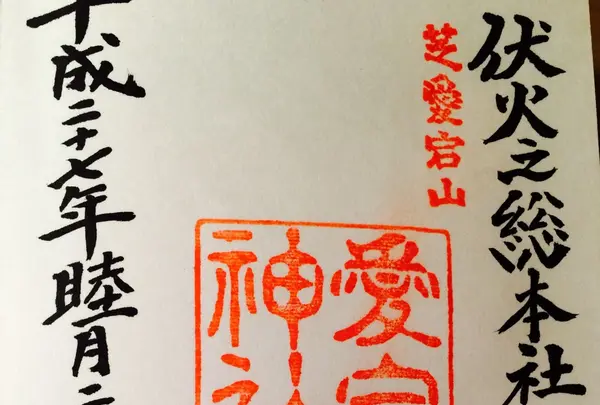 伏火之総本社
芝愛宕山
愛宕
神社
平成二十七年睦月二